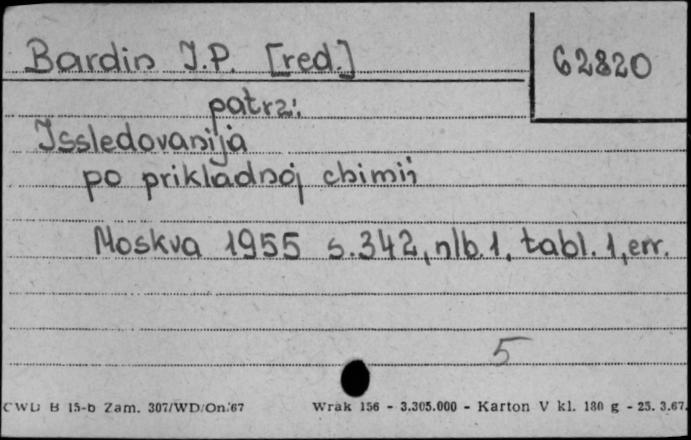 Bardin J.P. [red.]
62820
patrz:
Issledovanija
po prikladnoj chimii
Moskva 1955 s.342, nlb.1, tabl.1, err.
5
CWD B 15-b Zam. 307/WD/On.'67
Wrak 156 - 3.305.000 - Karton V kl. 180 g - 25. 3.67.